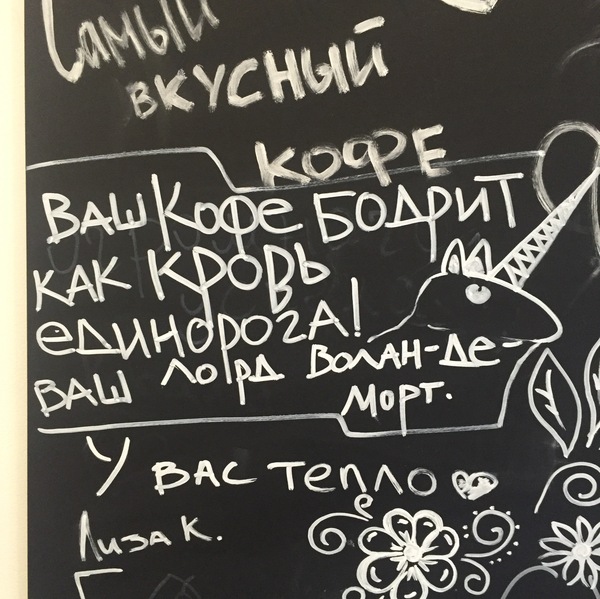 Самый
вкусный
кофе
Ваш кофе бодрит
как кровь
единорога!
Ваш лорд Волан-де-
морт.
У вас тепло
Лиза К.